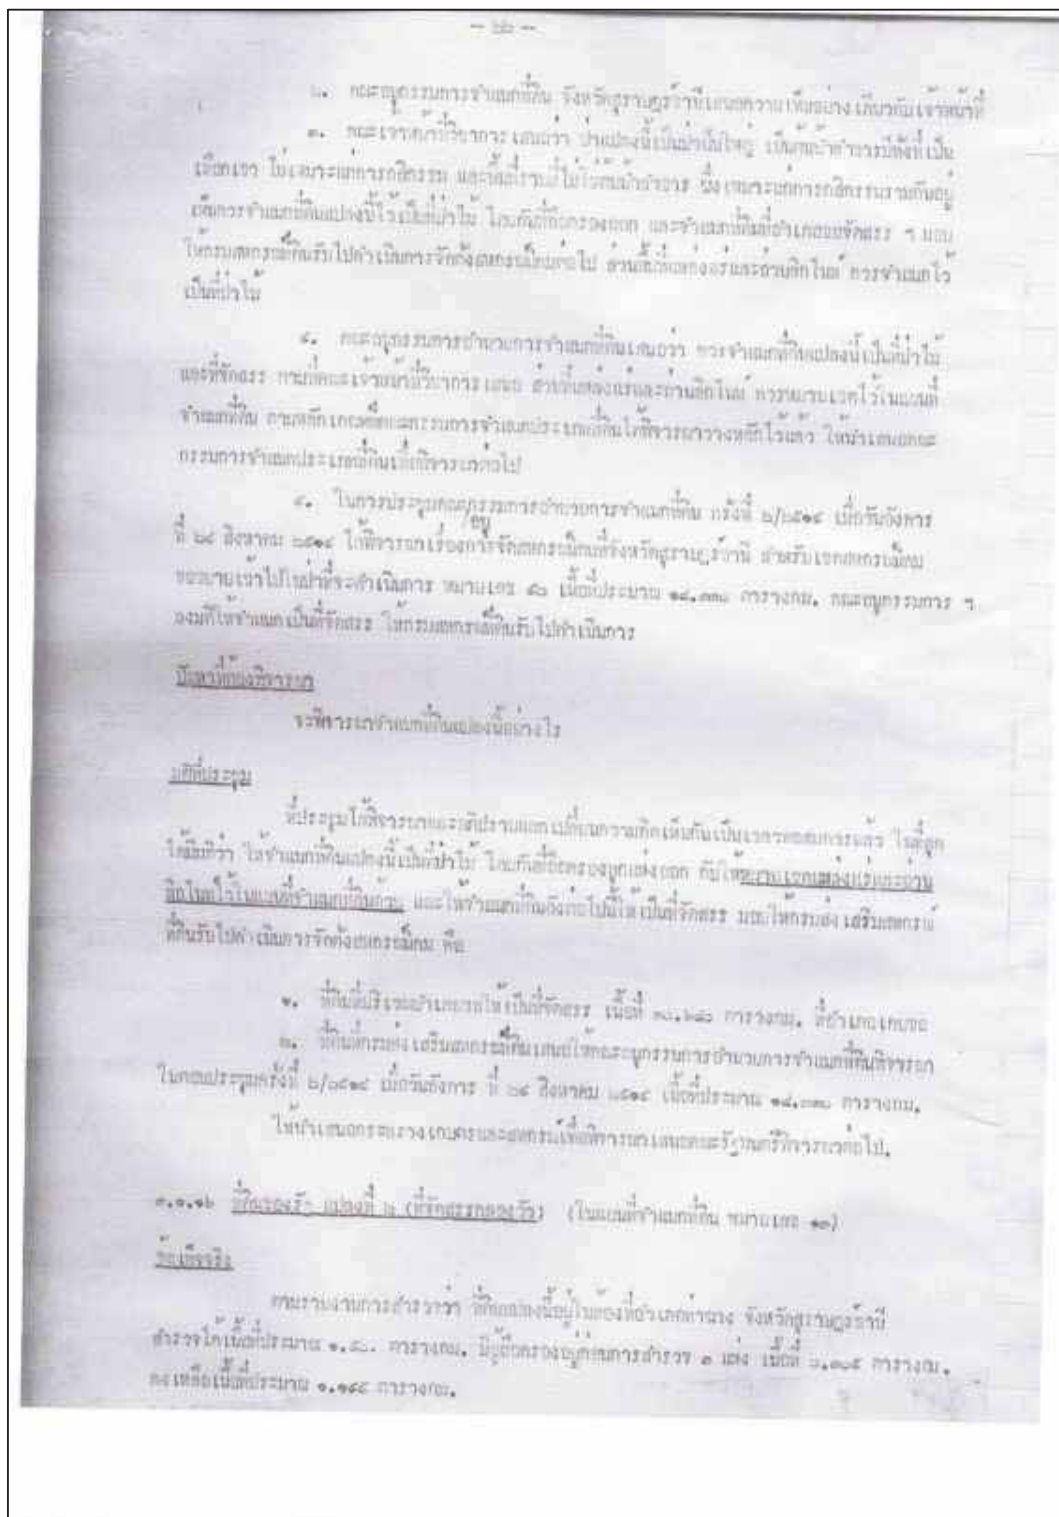 ๒. คณะอนุกรรมการจำแนกที่ดิน จังหวัดสุราษฎร์ธานีเสนอความเห็นอย่างเดียวกับเจ้าหน้าที่
๓. คณะเจ้าหน้าที่วิชาการ เสนอว่า ป่าแปลงนี้เป็นป่าผืนใหญ่ เป็นต้นน้ำลำธารมีทั้งที่เป็น
เทือกเขา ไม่เหมาะแก่การกสิกรรม และพื้นที่ราบที่ไม่ใช่ต้นน้ำลำธาร ซึ่งเหมาะแก่การกสิกรรมรวมกันอยู่
เห็นควรจำแนกที่ดินแปลงนี้ไว้เป็นที่ป่าไม้ โดยกันที่ถือครองออก และจำแนกที่ดินที่อำเภอขอจัดสรร ฯ มอบ
ให้กรมสหกรณ์ที่ดินรับไปดำเนินการจัดตั้งสหกรณ์นิคมต่อไป ส่วนพื้นที่แหล่งแร่และถ่านลิกไนต์ ควรจำแนกไว้
เป็นที่ป่าไม้
๔. คณะอนุกรรมการอำนวยการจำแนกที่ดินเสนอว่า ควรจำแนกที่ดินแปลงนี้เป็นที่ป่าไม้
และที่จัดสรร ตามที่คณะเจ้าหน้าที่วิชาการ เสนอ ส่วนที่แหล่งแร่และถ่านลิกไนต์ ควรหมายเขตไว้ในแผนที่
จำแนกที่ดิน ตามหลักเกณฑ์ที่คณะกรรมการจำแนกประเภทที่ดินได้พิจารณาวางหลักไว้แล้ว ให้นำเสนอคณะ
กรรมการจำแนกประเภทที่ดินเพื่อพิจารณาต่อไป
๕. ในการประชุมคณะอนุกรรมการอำนวยการจำแนกที่ดิน ครั้งที่ ๒/๒๕๑๕ เมื่อวันอังคาร
ที่ สิงหาคม ๒๕๑๕ ได้พิจารณาเรื่องการจัดสหกรณ์นิคมที่จังหวัดสุราษฎร์ธานี สำหรับเขตสหกรณ์นิคม
ขยายเข้าไปในป่าที่จะดำเนินการ หมายเลข เนื้อที่ประมาณ ตารางกม. คณะอนุกรรมการ ฯ
ลงมติให้จำแนกเป็นที่จัดสรร ให้กรมสหกรณ์ที่ดินรับไปดำเนินการ
ปัญหาที่ต้องพิจารณา
จะพิจารณาจำแนกที่ดินแปลงนี้อย่างไร
มติที่ประชุม
ที่ประชุมได้พิจารณาและอภิปรายแลกเปลี่ยนความคิดเห็นกันเป็นเวลาพอสมควรแล้ว ในที่สุด
ได้มีมติว่า ให้จำแนกที่ดินแปลงนี้เป็นที่ป่าไม้ โดยกันที่ถือครองทุกแห่งออก กับให้หมายเขตแหล่งแร่และถ่าน
ลิกไนต์ไว้ในแผนที่จำแนกที่ดินด้วย และให้จำแนกที่ดินดังต่อไปนี้ให้เป็นที่จัดสรร มอบให้กรมส่งเสริมสหกรณ์
ที่ดินรับไปดำเนินการจัดตั้งสหกรณ์นิคม คือ
๑. ที่ดินที่บริเวณอำเภอขอให้เป็นที่จัดสรร เนื้อที่ ตารางกม. ที่อำเภอเสนอขอ
๒. ที่ดินที่กรมส่งเสริมสหกรณ์ที่ดินเสนอให้คณะอนุกรรมการอำนวยการจำแนกที่ดินพิจารณา
ในคณะประชุมครั้งที่ ๒/๒๕๑๕ เมื่อวันอังคาร ที่ สิงหาคม ๒๕๑๕ เนื้อที่ประมาณ ตารางกม.
ให้นำเสนอกระทรวงเกษตรและสหกรณ์เพื่อพิจารณาเสนอคณะรัฐมนตรีพิจารณาต่อไป.
๓.๑.๑๖ ที่ดินของรัฐ แปลงที่ ๒ (ที่จัดสรรคลองวัว) (ในแผนที่จำแนกที่ดิน หมายเลข ๑๓)
ข้อเท็จจริง
ตามรายงานการสำรวจว่า ที่ดินแปลงนี้อยู่ในท้องที่อำเภอท่าฉาง จังหวัดสุราษฎร์ธานี
สำรวจได้เนื้อที่ประมาณ ตารางกม. มีผู้ถือครองอยู่ก่อนการสำรวจ ๓ แห่ง เนื้อที่ ตารางกม.
คงเหลือเนื้อที่ประมาณ ตารางกม.